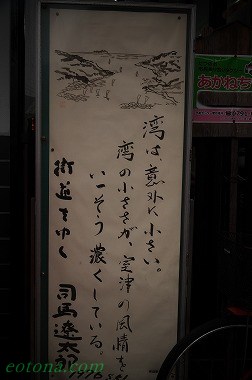 湾は、意外に小さい。
湾の小ささが、室津の風情を
いっそう濃くしている。
街道をゆく 司馬遼太郎
あかねち
eotona.com